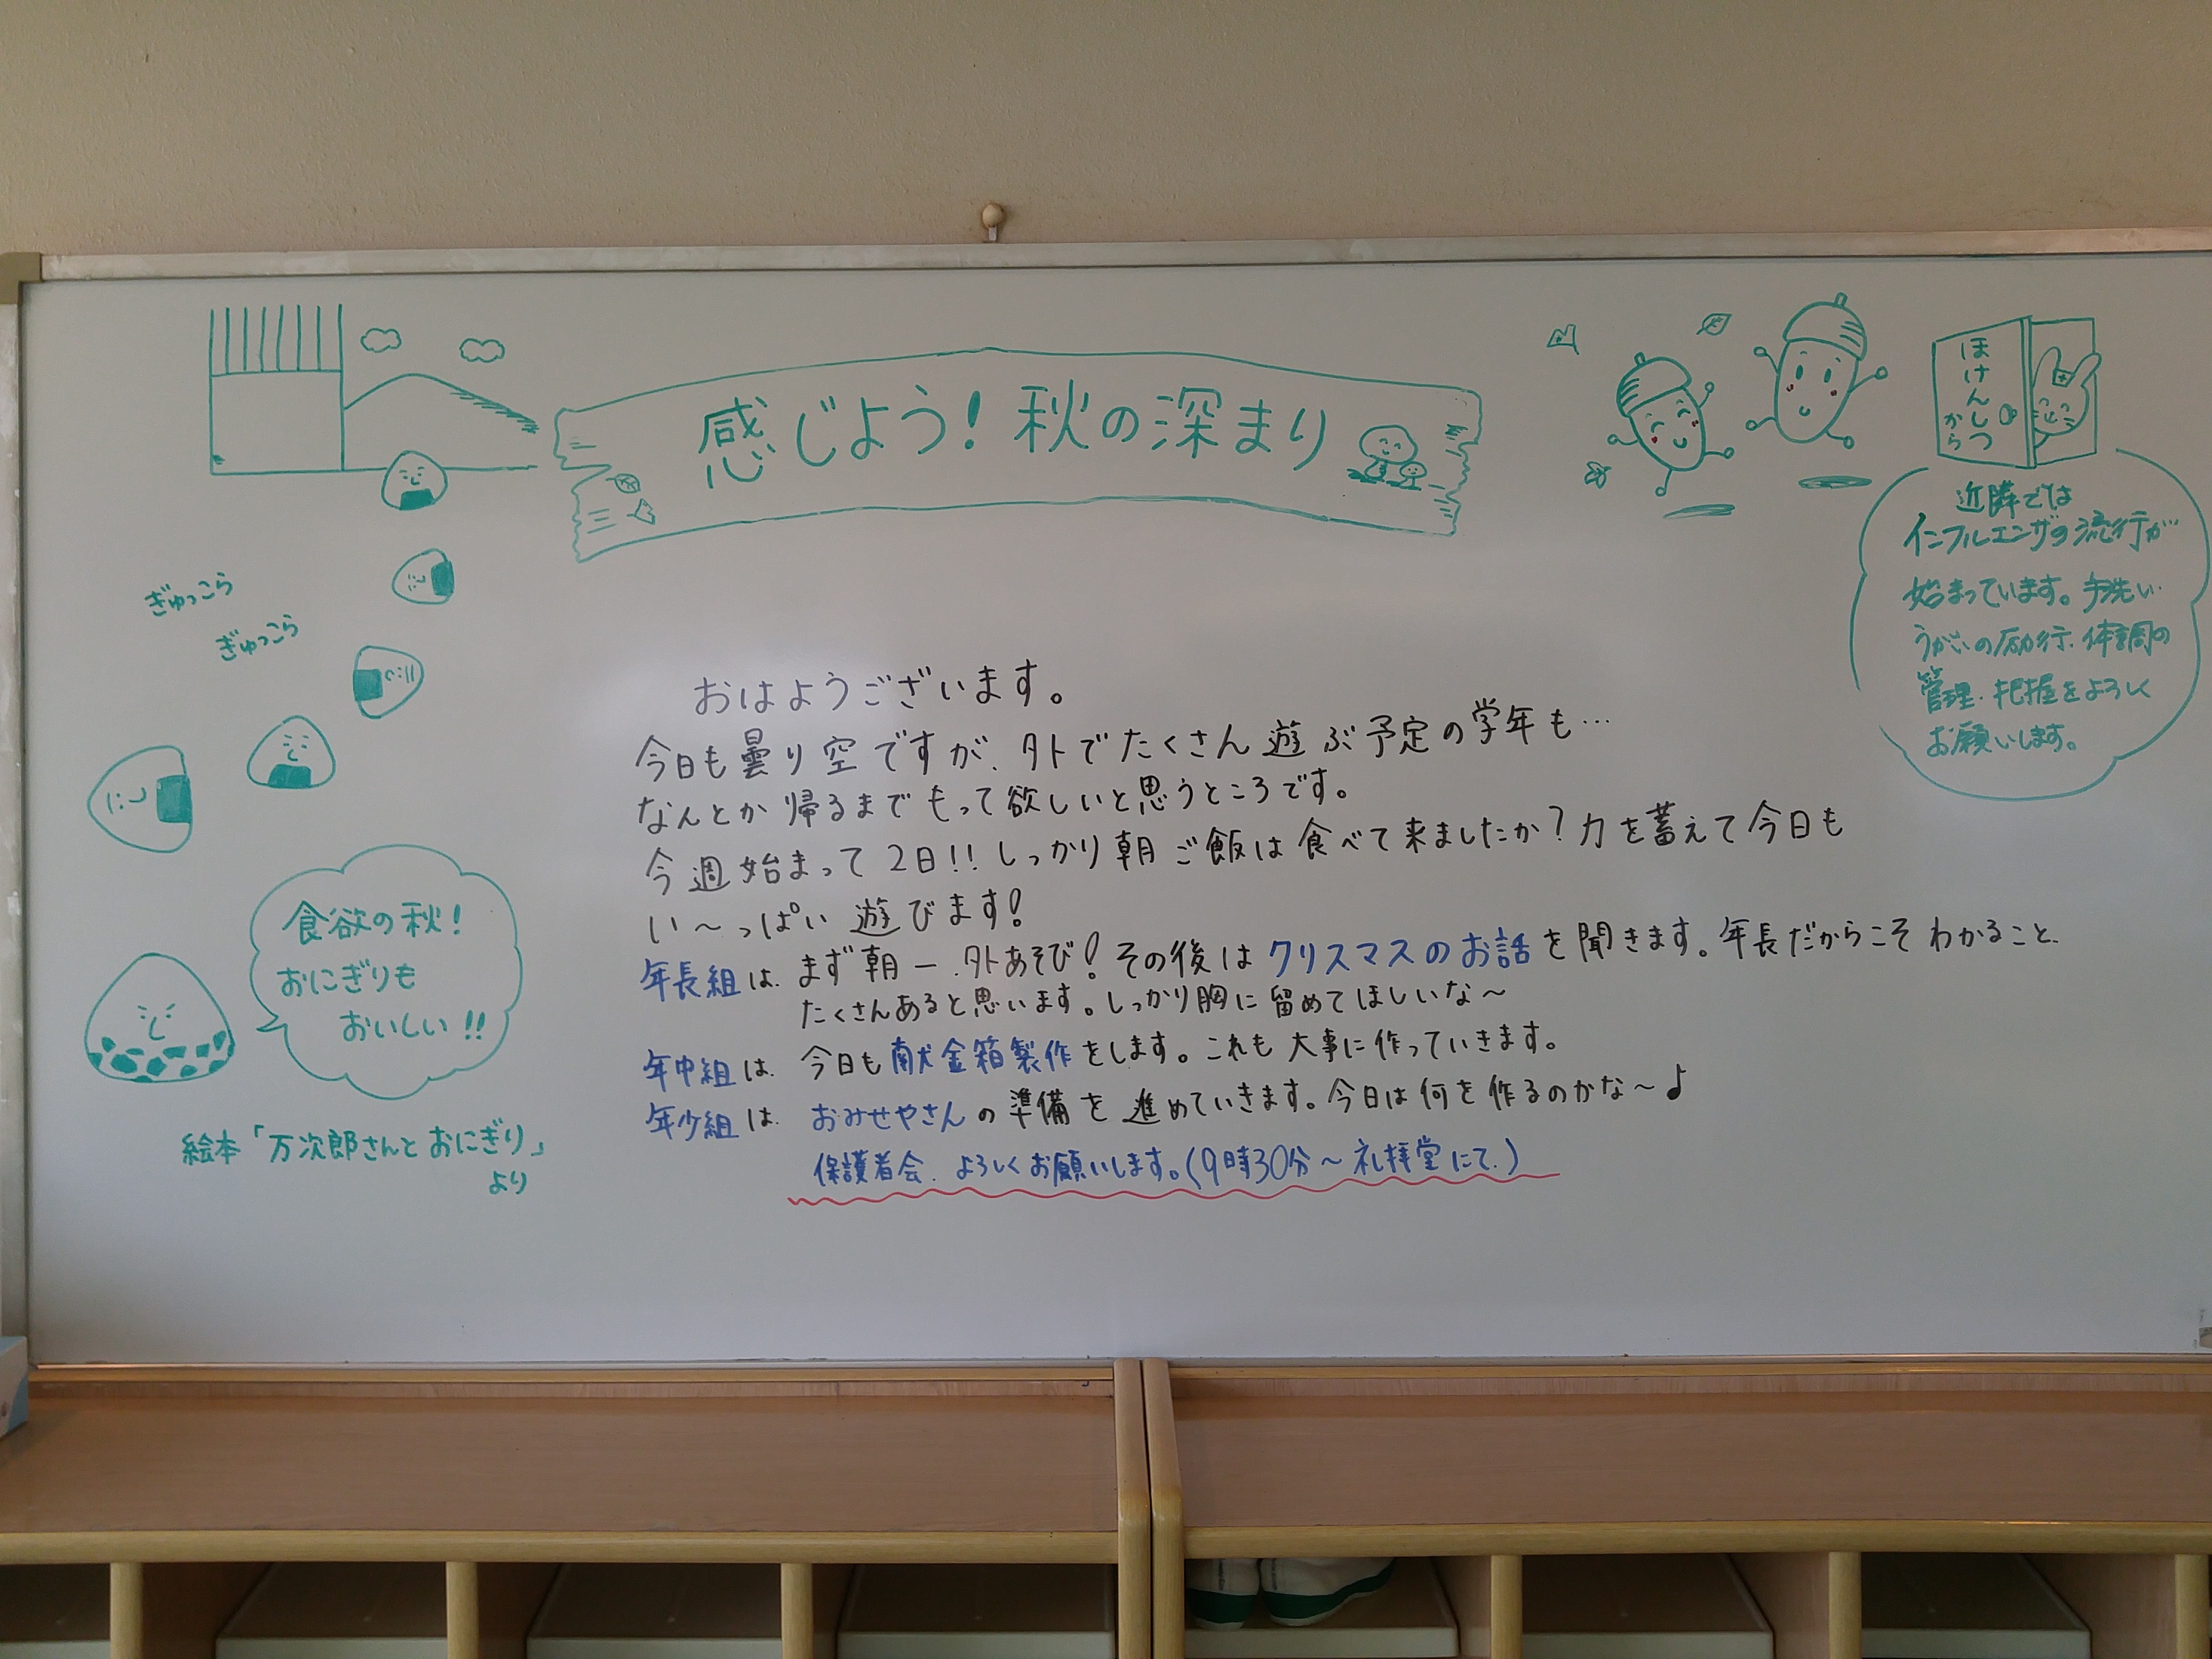 感じよう!秋の深まり
ほけんしつ
から
近隣では
インフルエンザの流行が
始まっています。手洗い・
うがいの励行、体調の
管理・把握をよろしく
お願いします。
ぎゅっこら
ぎゅっこら
おはようございます。
今日も曇り空ですが、外でたくさん遊ぶ予定の学年も…
なんとか帰るまでもって欲しいと思うところです。
今週始まって2日!!しっかり朝ご飯は食べて来ましたか?力を蓄えて今日も
い〜っぱい遊びます!
年長組は、まず朝一、外あそび!その後はクリスマスのお話を聞きます。年長だからこそわかること、
たくさんあると思います。しっかり胸に留めてほしいな〜
年中組は、今日も献金箱製作をします。これも大事に作っていきます。
年少組は、おみせやさんの準備を進めていきます。今日は何を作るのかな〜♪
保護者会、よろしくお願いします。(9時30分〜礼拝堂にて。)
食欲の秋!
おにぎりも
おいしい!!
絵本「万次郎さんとおにぎり」
より